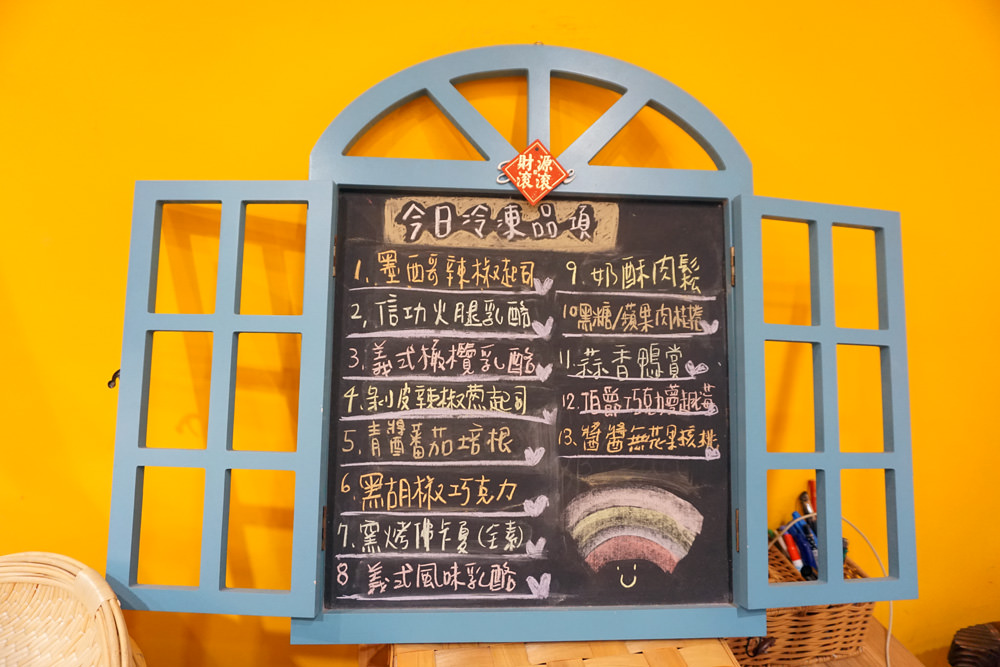 財源
滾滾
今日冷凍品項
1. 墨西哥辣椒起司
2. 信功火腿乳酪
3. 義式橄欖乳酪
4. 剝皮辣椒蔥起司
5. 青醬番茄培根
6. 黑胡椒巧克力
7. 窯烤佛卡夏(全素)
8 義式風味乳酪
9. 奶酥肉鬆
10 黑糖/蘋果肉桂捲
11. 蒜香鴨賞
12. 伯爵巧克力蔓越莓
13. 醬醬無花果核桃